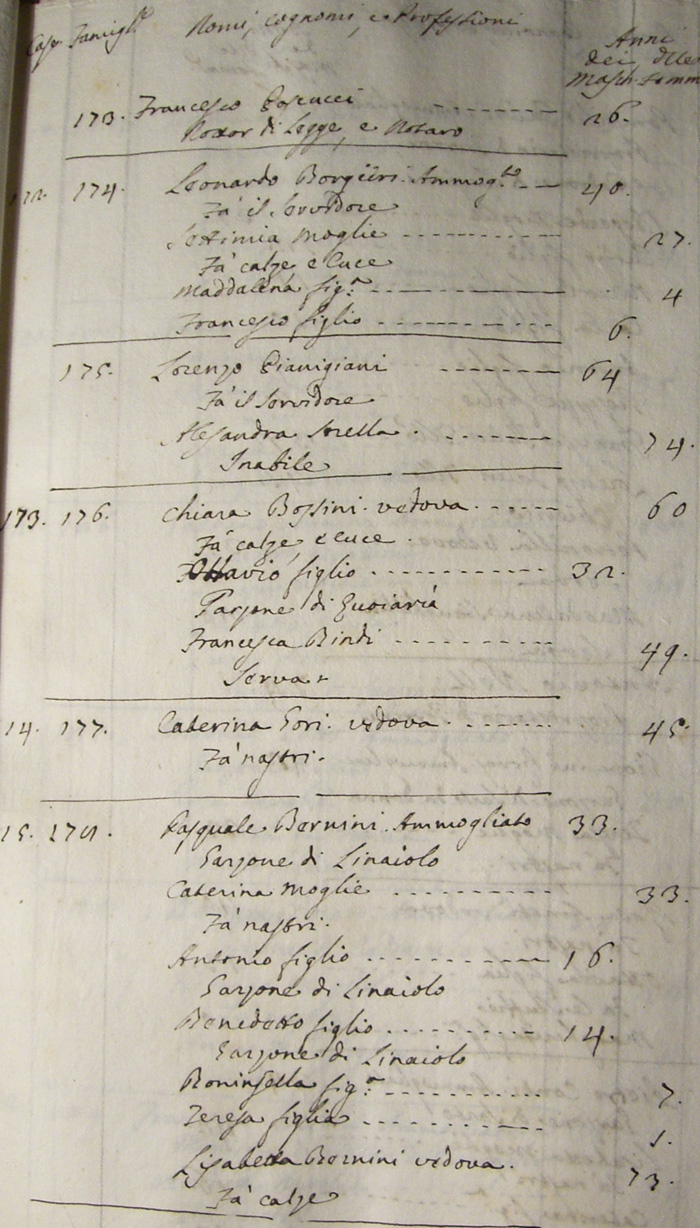 Case Famigl.e Nomi, Cognomi, e Professioni Anni
dei delle
Masch. Femm
173. Francesco Boscucci 26.
Dottor di Legge, e Notaro
174. Leonardo Borghini Ammog.to 40.
Fà il Servidore
Settimia Moglie 27.
Fà calze e cuce
Maddalena fig.a 4
Francesco figlio 6.
175. Lorenzo Pianigiani 64
Fà il Servidore
Alesandra Sorella 74.
Inabile
173. 176. Chiara Bossini vedova 60
Fà calze, e cuce
Ottavio figlio 32.
Garzone di
Francesca Bindi 49.
Serva
14. 177. Caterina Gori vedova 45.
Fà nastri.
15. 178. Pasquale Bernini Ammogliato 33.
Garzone di Linaiolo
Caterina Moglie 33.
Fà nastri.
Antonio figlio 16.
Garzone di Linaiolo
Benedetto figlio 14.
Garzone di Linaiolo
Boninsella fig.a 7.
Teresa figlia 1.
Lisabetta Bernini vedova. 73.
Fà calze